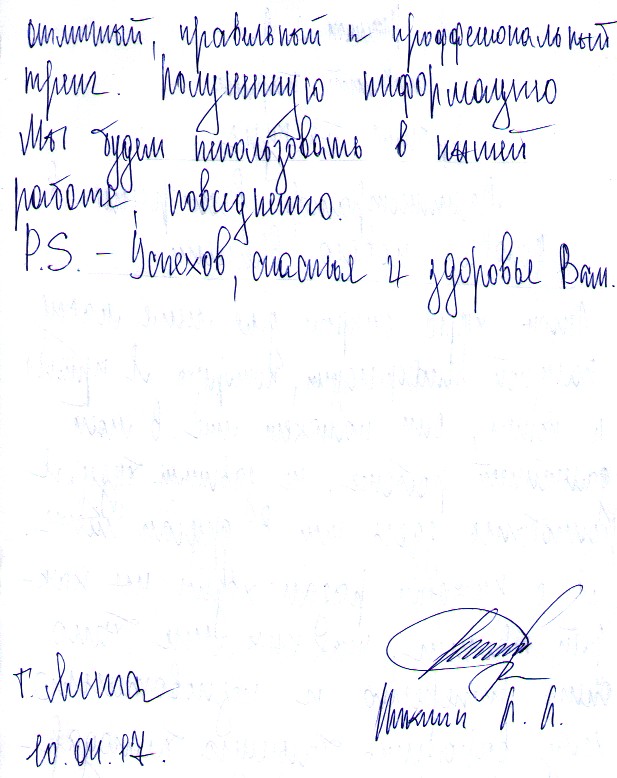 отличный, правильный и профессиональный
тренг. Полученную информацию
Мы будем использовать в нашей
работе, повседневно.
P.S. - Успехов, счастья и здоровье Вам.
г. Ялта
10.04.17.